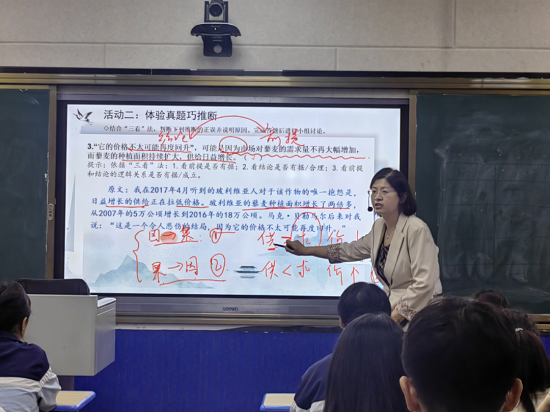 活动二：体验真题巧推断
◇结合“三看”法，判断下列推断的正误并说明原因，完成答题后进行小组讨论。
结论 前提
3.“它的价格不太可能再度回升”，可能是因为市场对藜麦的需求量不再大幅增加，
而藜麦的种植面积持续扩大，供给日益增长。
提示：依据“三看”法：1.看前提是否有据；2.看结论是否有据/合理；3.看前提
和结论的逻辑关系是否有据/成立。
原文：我在2017年4月听到的玻利维亚人对于该作物的唯一抱怨是，
日益增长的供给正在拉低价格。玻利维亚的藜麦种植面积增长了两倍多，
从2007年的5万公顷增长到2016年的18万公顷。马克·贝勒马尔后来对我
说：“这是一个令人悲伤的结局，因为它的价格不太可能再度回升。”
因→果 ① 供 求 价
果→因 ② 供<求 价个